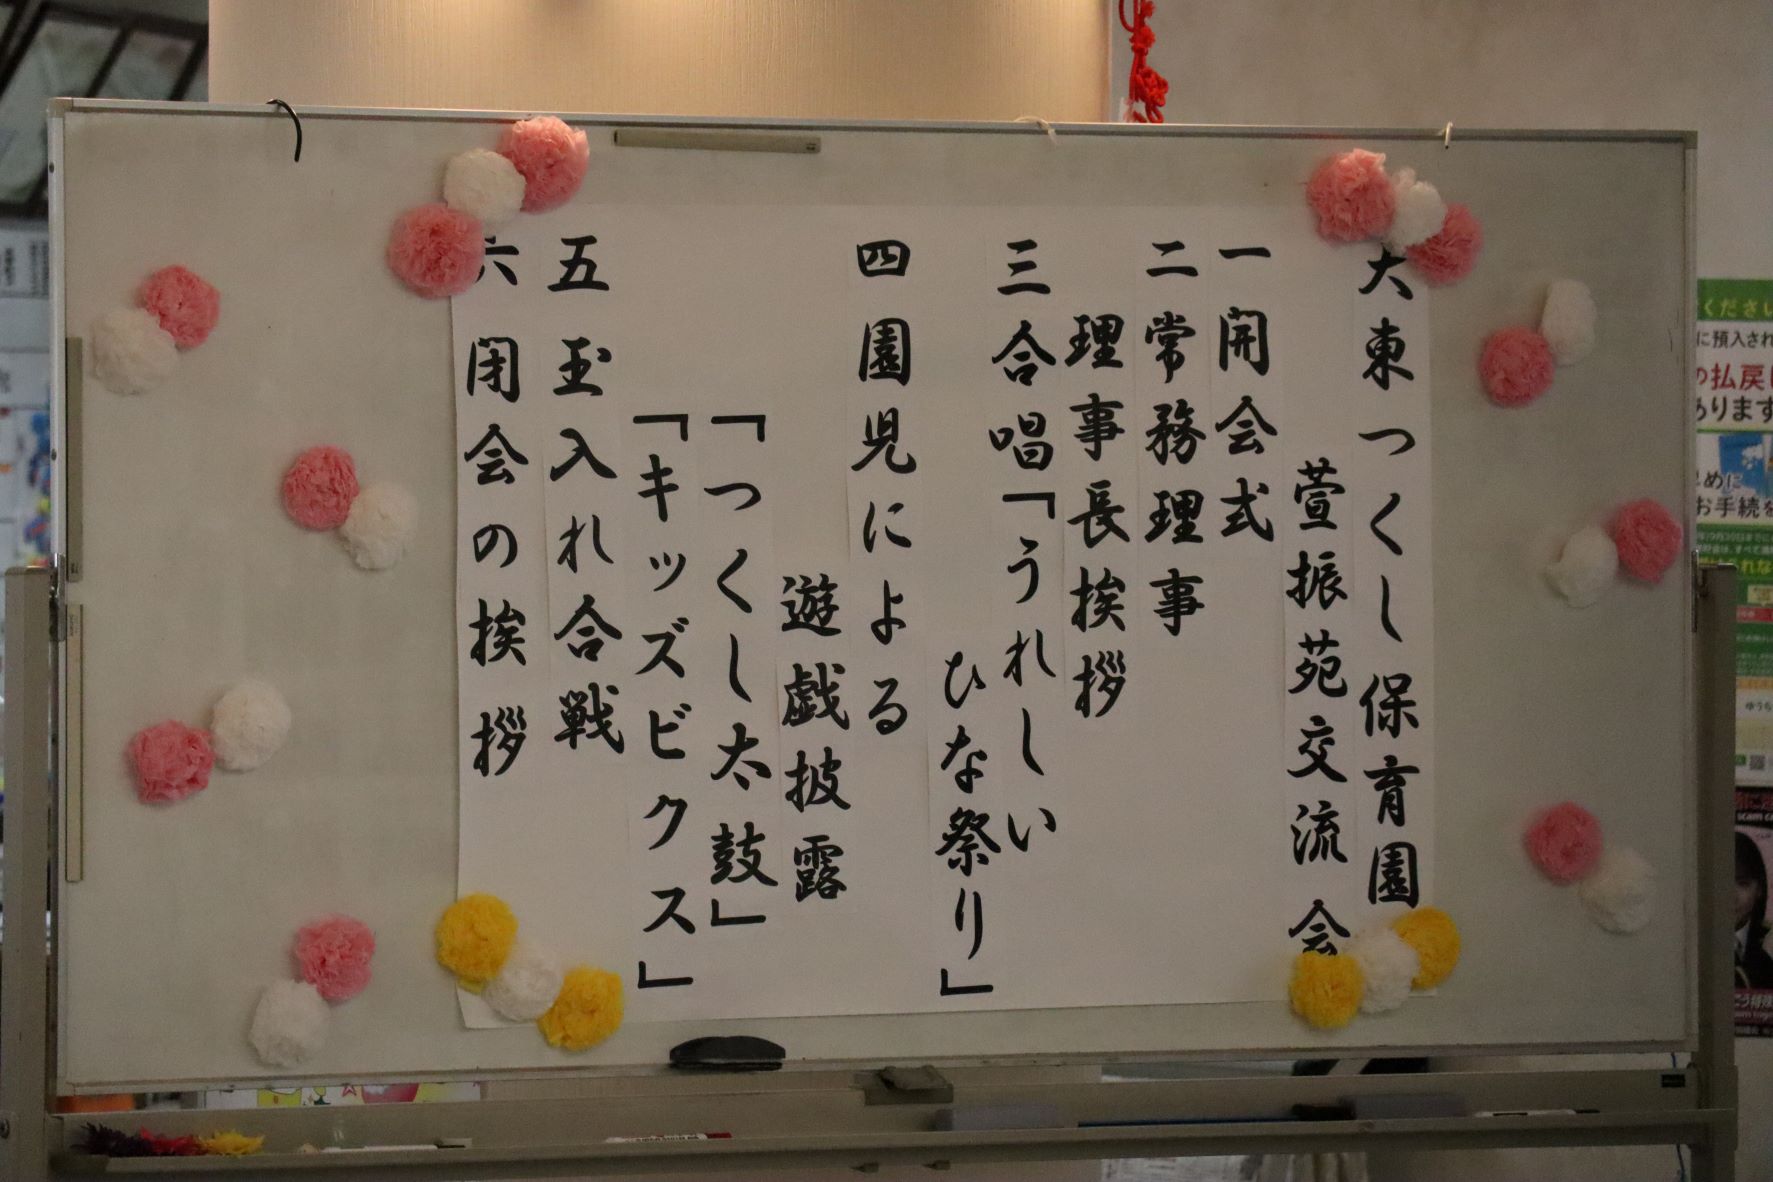 大東つくし保育園
萱振苑交流会
一 開会式
二 常務理事
理事長挨拶
三 合唱「うれしい
ひな祭り」
四 園児による
遊戯披露
「つくし太鼓」
「キッズビクス」
五 玉入れ合戦
六 閉会の挨拶
ください
に預入され
の払戻し
あります
早めに
お手続を
ゆうち
scam ca